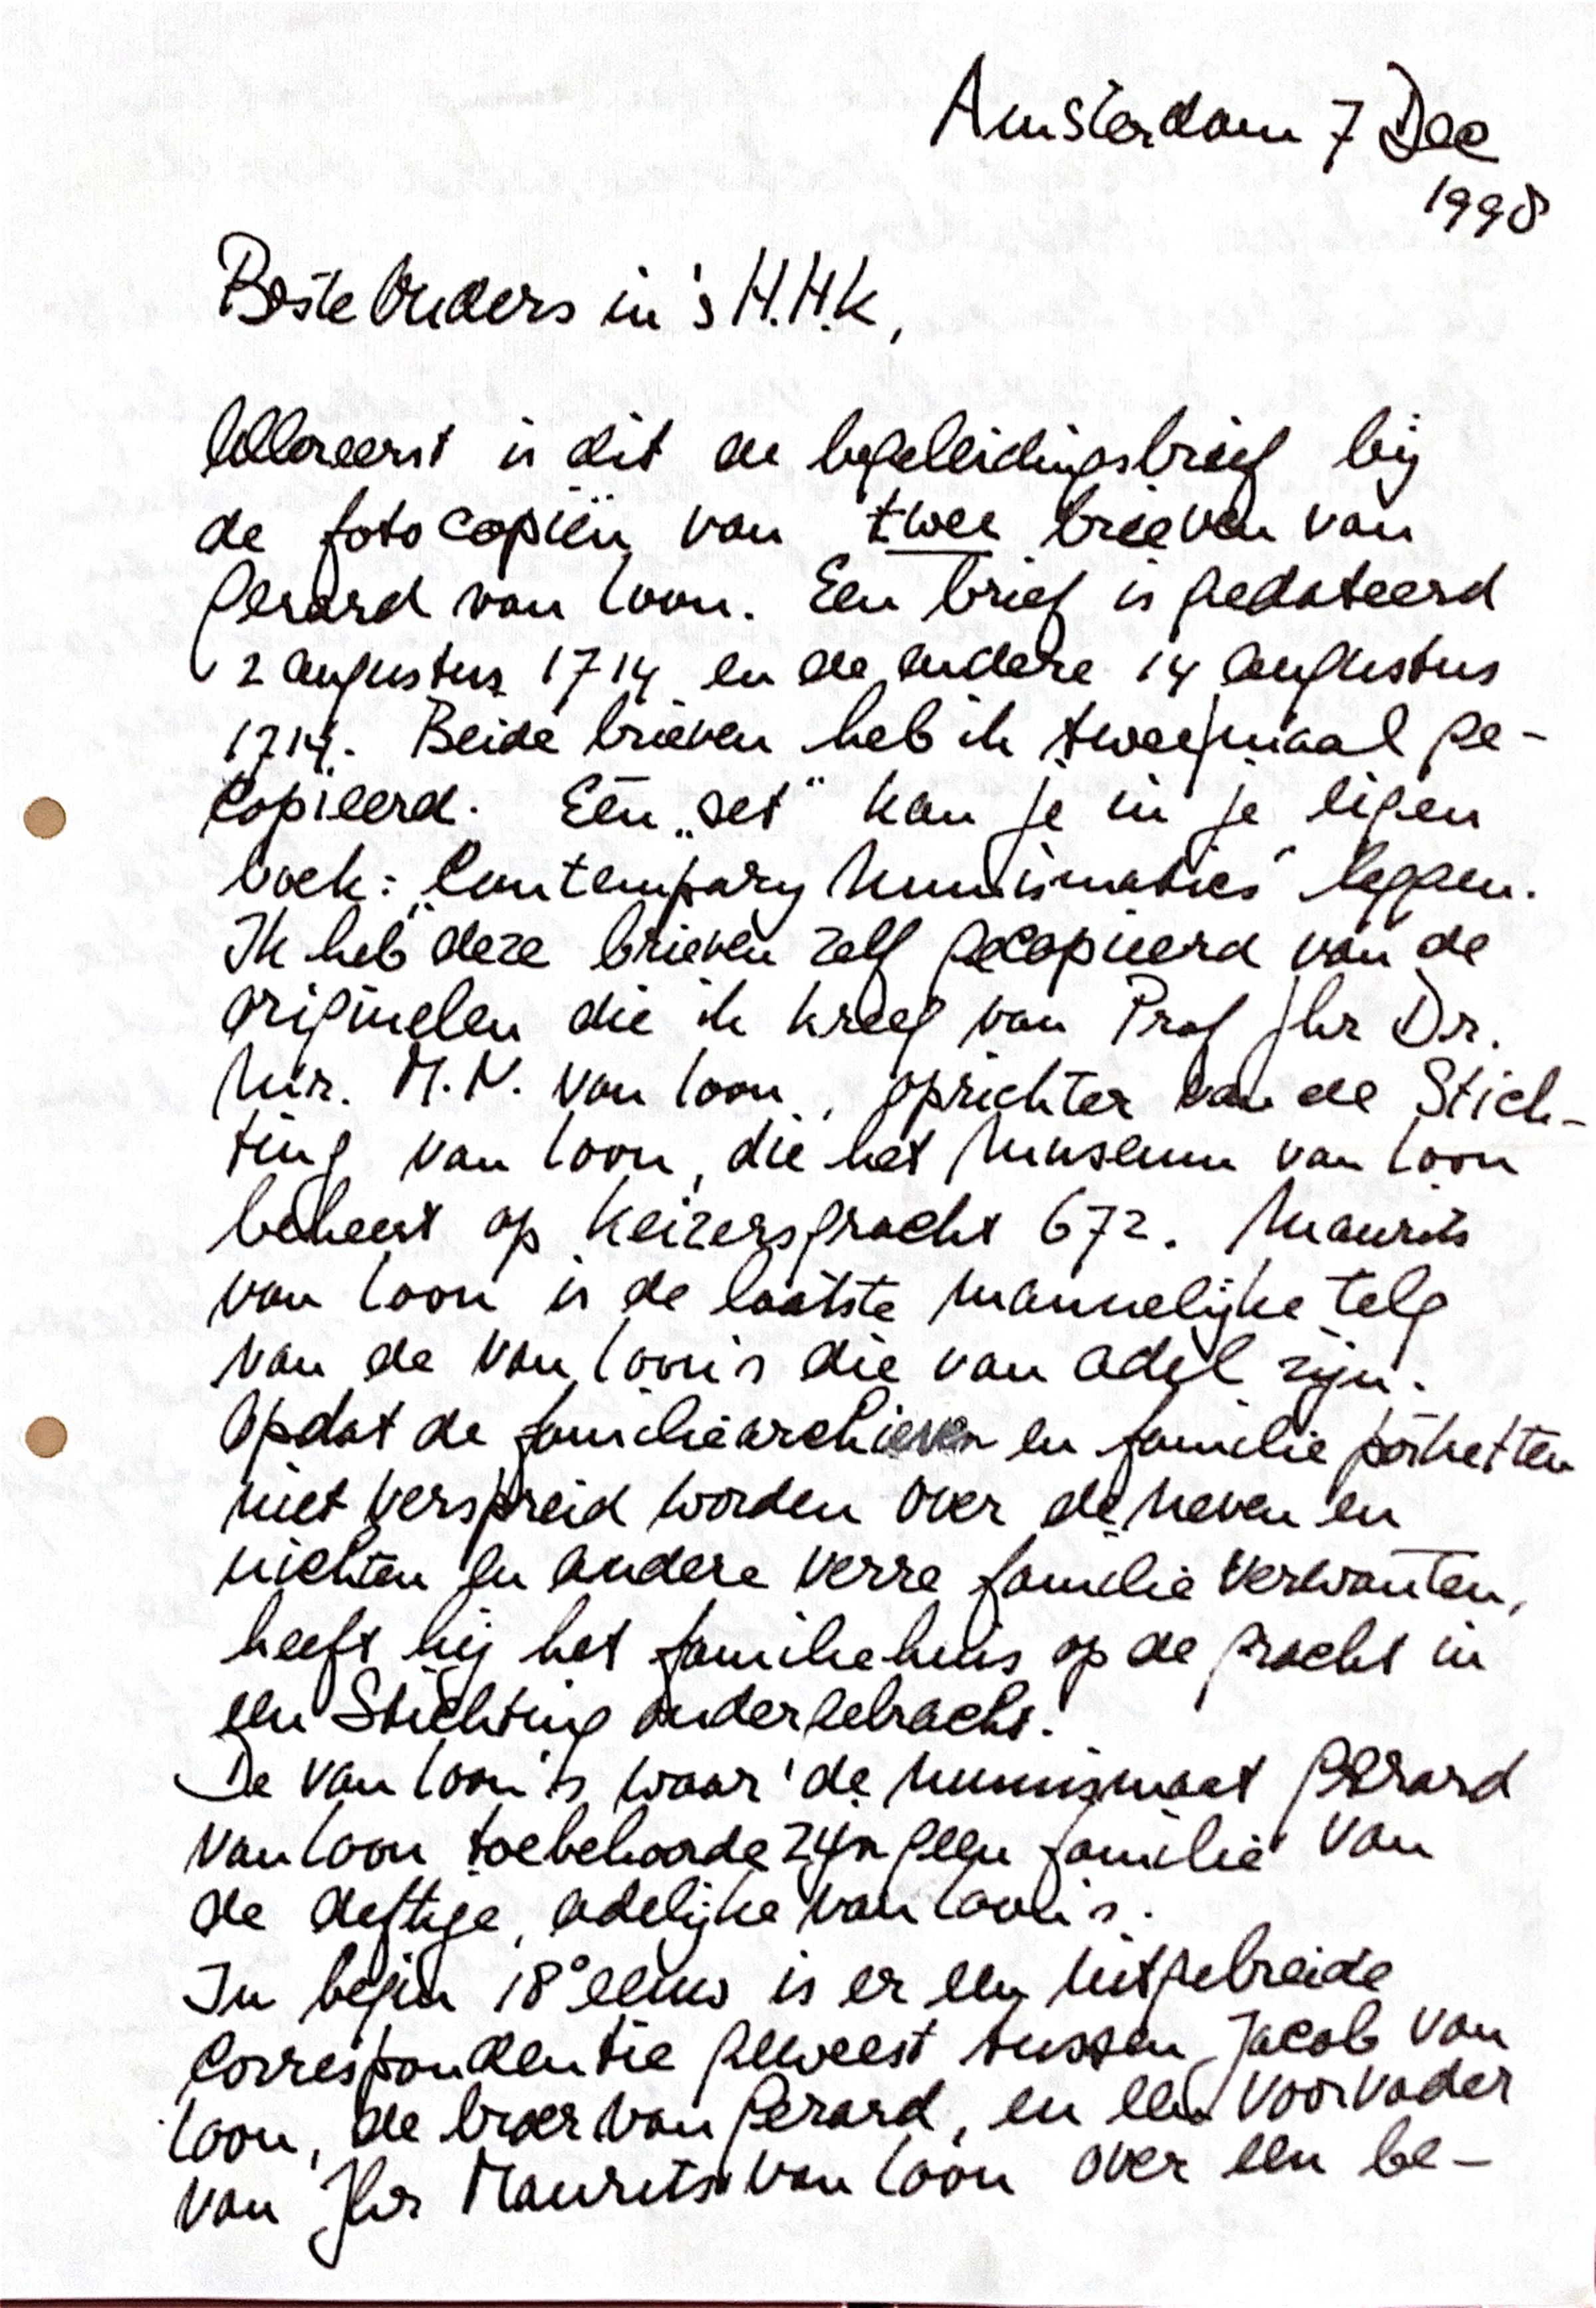 Amsterdam 7 Dec
1998
Beste Ouders in 's H.H.K,
Allereerst is dit de begeleidingsbrief bij
de fotocopiën van twee brieven van
Gerard van Loon. Een brief is gedateerd
2 augustus 1714 en de andere 14 augustus
1714. Beide brieven heb ik tweemaal ge-
copieerd. Eén „set" kan je in je eigen
boek: „Contempary Numismatics" leggen.
Ik heb deze brieven zelf gecopieerd van de
originelen die ik kreeg van Prof Jhr Dr.
Mr. M.N. van Loon, oprichter van de Stich-
ting van Loon, die het Museum van Loon
beheert op Keizersgracht 672. Maurits
van Loon is de laatste mannelijke telg
van de van Loon's die van adel zijn.
Opdat de familiearchieven en familie portretten
niet verspreid worden over de neven en
nichten en andere verre familie verwanten,
heeft hij het familiehuis op de gracht in
een Stichting ondergebracht.
De van Loon's waar de numismaat Gerard
van Loon toebehoorde zijn geen familie van
de deftige, adelijke van Loon's.
In begin 18e eeuw is er een uitgebreide
correspondentie geweest tussen Jacob van
Loon, de broer van Gerard, en een voorvader
van Jhr Maurits van Loon over een be-